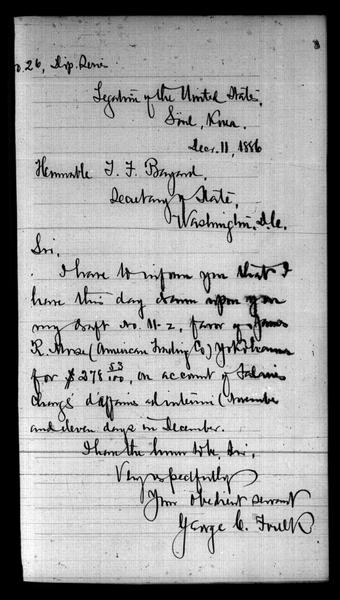 o. 26, Dip. Serie
Legation of the United States,
Söul, Korea.
Decr. 11, 1886
Honorable T. F. Bayard,
Secretary of State,
Washington, D.C.
Sir.
I have to inform you that I
have this day drawn upon you
my draft No. 11-2, favor of James
R. Morse (American Trading Co) Yokohama
for $ 278 53/100, on account of Salaries
Chargé d'affaires ad interim (November
and eleven days in December.
I have the honor to be, Sir,
Very respectfully
Your obedient servant
George C. Foulk